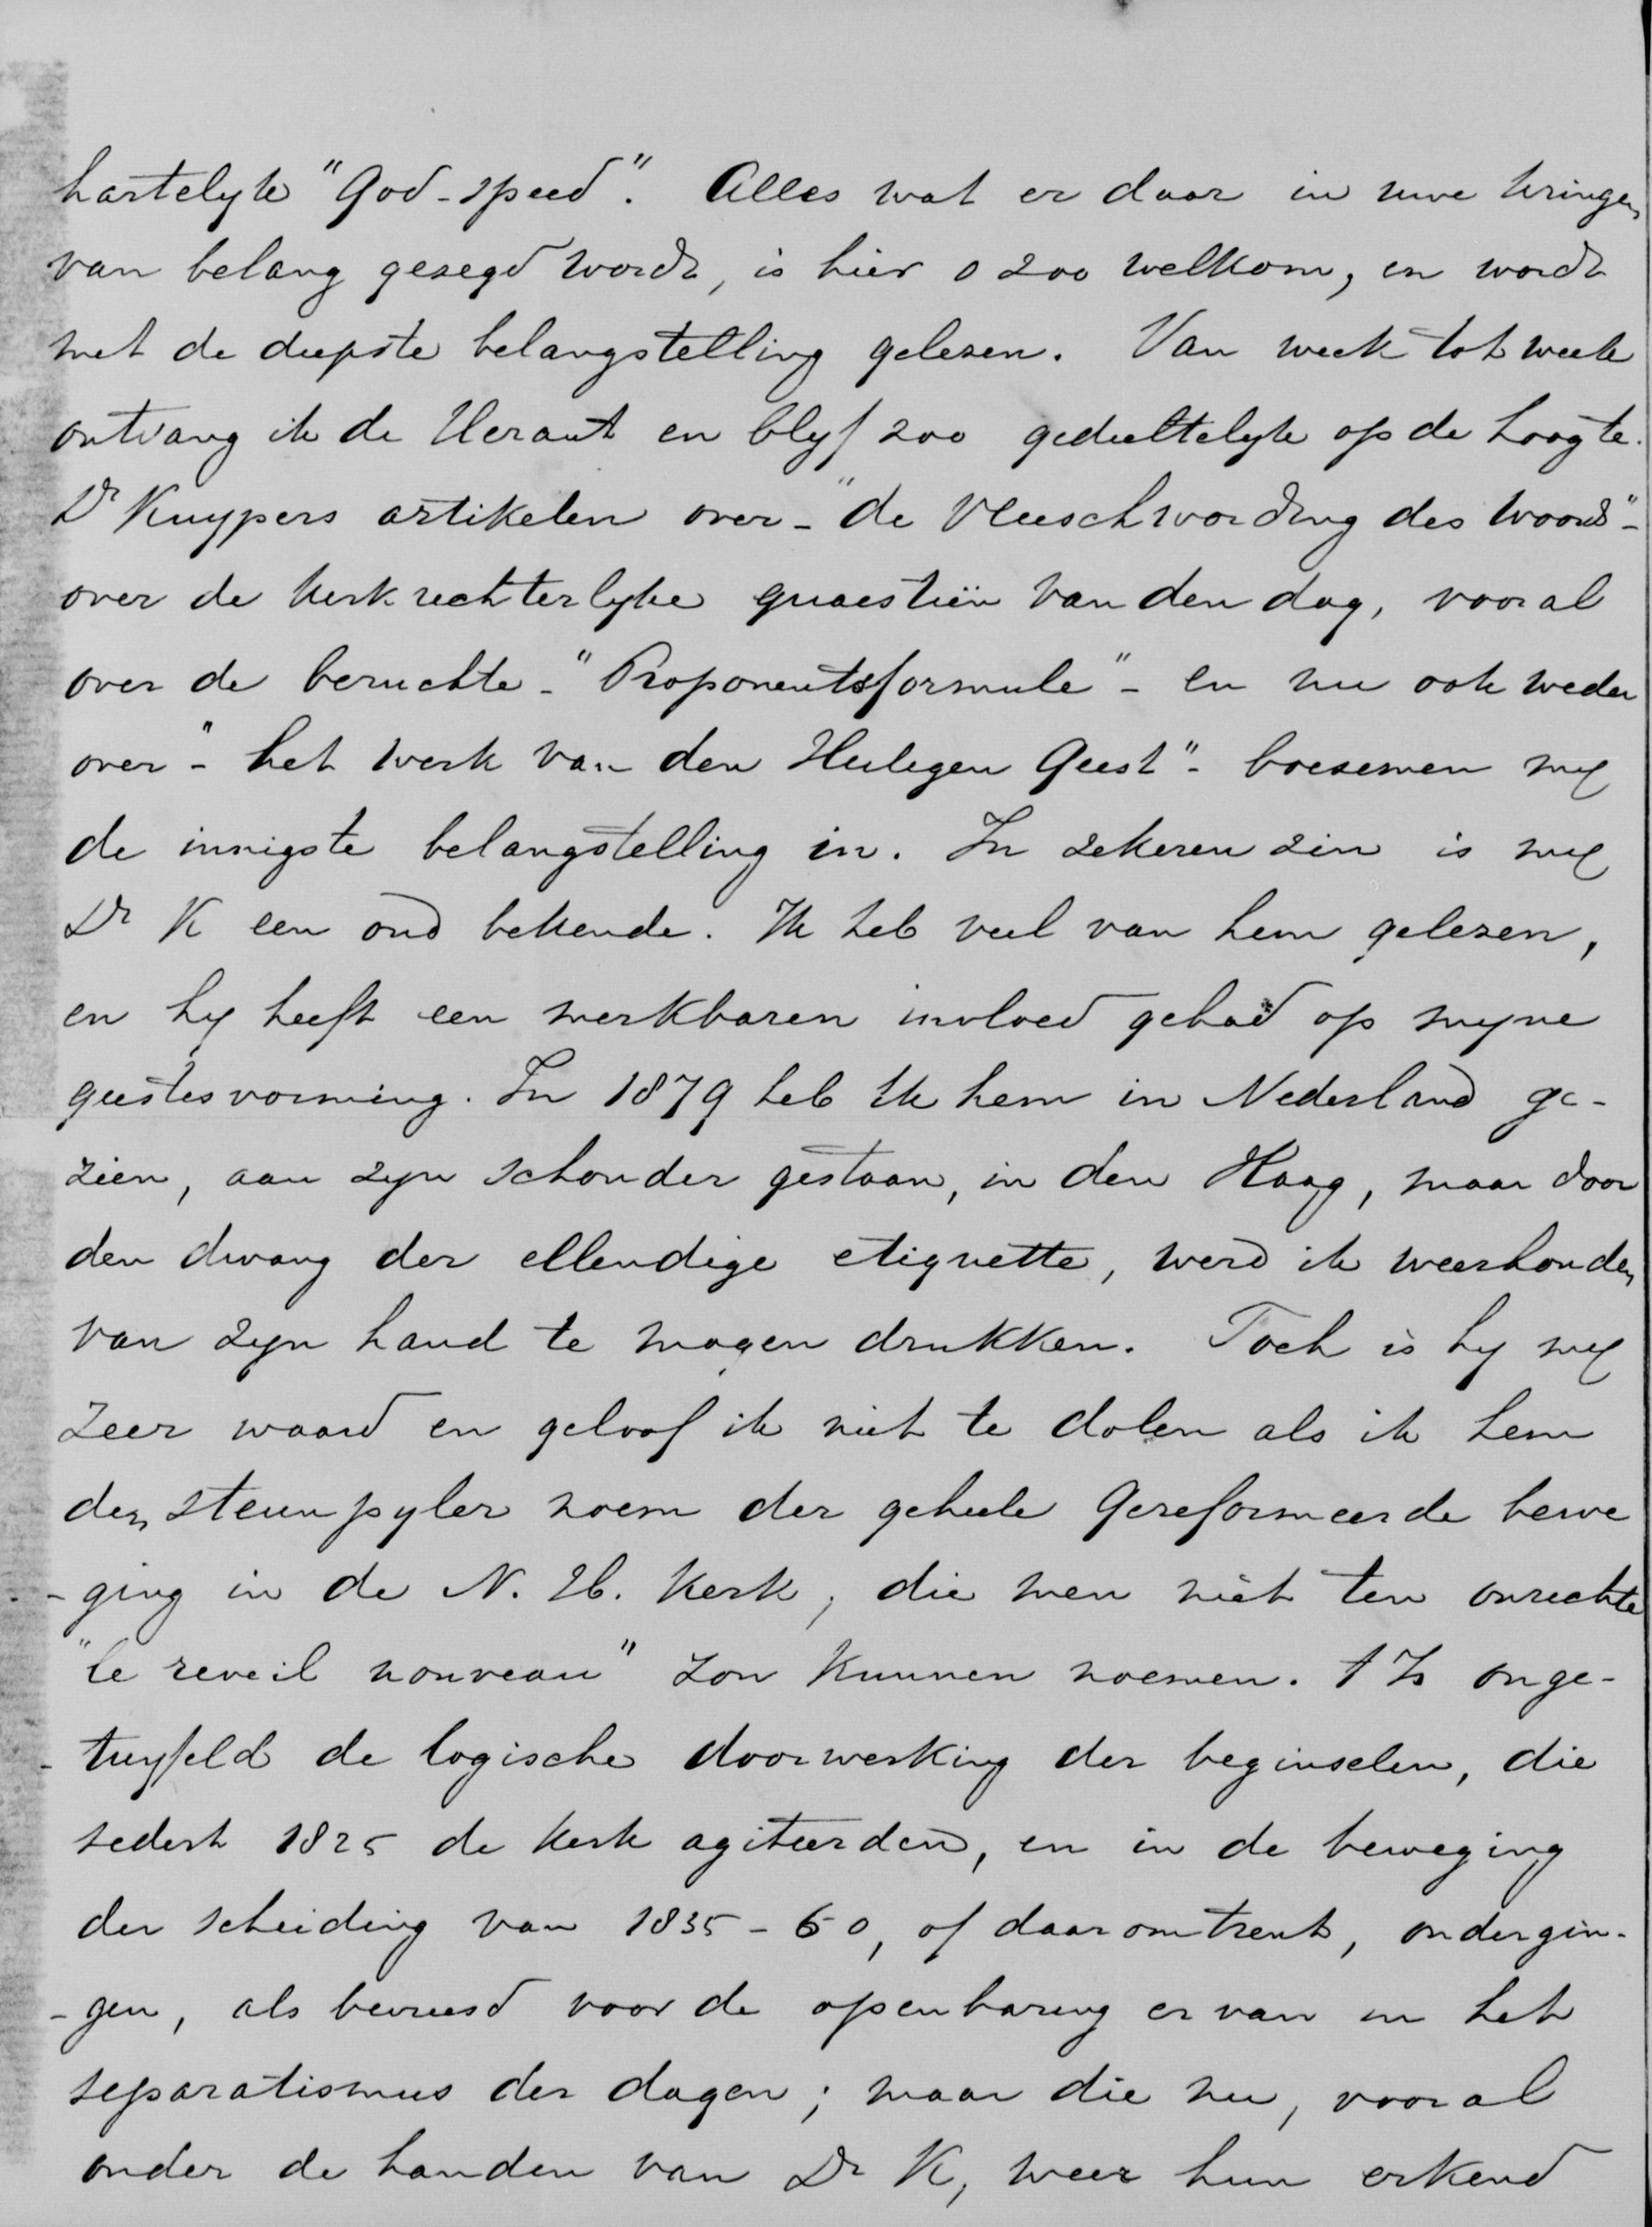 hartelyk "God-speed". Alles wat er daar in uwe kringen
van belang gesegd wordt, is hier o zoo welkom, en wordt
met de diepste belangstelling gelesen. Van week tot week
ontvang ik de Heraut en blyf zoo gedeeltelyk op de hoogte.
Dr Kuypers artikelen over - "de Vleeschwording des Woords" -
over de kerkrechterlyke quaestiën van den dag, vooral
over de beruchte - "Proponentsformule" - en nu ook weder
over "- het werk van den Heiligen Geest" - boesemen my
de innigste belangstelling in. In zekeren zin is my
Dr K een oud bekende. Ik heb veel van hem gelesen,
en hy heeft een merkbaren invloed gehad op myne
geestesvorming. In 1879 heb ik hem in Nederland ge-
zien, aan zyn schouder gestaan, in den Haag, maar door
den dwang der ellendige etiquette, werd ik weerhouden
van zyn hand te mogen drukken. Toch is hy my
zeer waard en geloof ik niet te dolen als ik hem
den steunpyler noem der geheele Gereformeerde bewe
-ging in de N. H. Kerk, die men niet ten onrechte
"le reveil nouveau" zou kunnen noemen. t Is onge-
-twyfeld de logische doorwerking der beginselen, die
sedert 1825 de Kerk agiteerden, en in de beweging
der scheiding van 1835-60, of daaromtrent, ondergin-
-gen, als bevreesd voor de openbaring er van in het
separatismus der dagen; maar die nu, vooral
onder de handen van Dr K, weer hun erkend